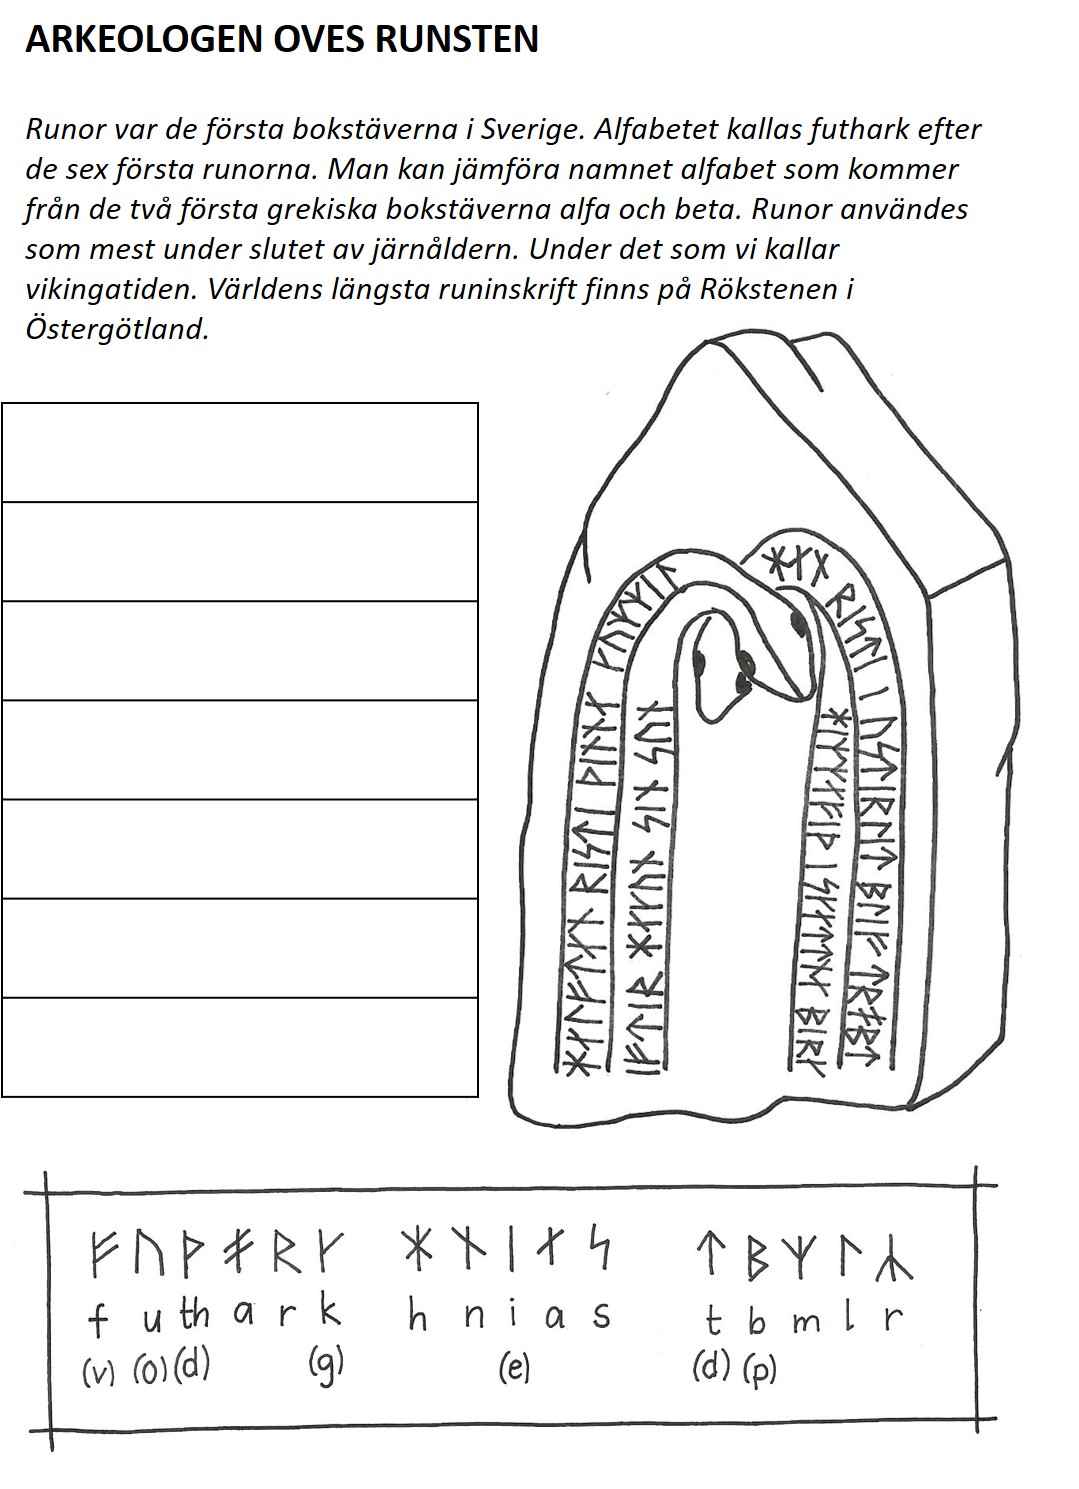 ARKEOLOGEN OVES RUNSTEN
Runor var de första bokstäverna i Sverige. Alfabetet kallas futhark efter
de sex första runorna. Man kan jämföra namnet alfabet som kommer
från de två första grekiska bokstäverna alfa och beta. Runor användes
som mest under slutet av järnåldern. Under det som vi kallar
vikingatiden. Världens längsta runinskrift finns på Rökstenen i
Östergötland.
ᚼᛅᛚᚠᛏᛅᚾ ᚱᛁᛋᛏᛁ ᚦᛁᚾᚾᛅ ᚴᚢᛘᛘᛁᛚ
ᛁᚠᛏᛁᚱ ᚼᛅᚴᚢᚾ ᛋᛁᚾ ᛋᚢᚾ
ᚼᛅᚾ ᚱᛁᛋᛏᛁ ᛁ ᚢᛋᛏᛁᚱᛚᛁᛏ ᛒᛚᛁᚠ ᛏᚱᚬᛒᛏ
ᛒᛁᚱᚴ
ᚠ ᚢ ᚦ ᚬ ᚱ ᚴ ᚼ ᚾ ᛁ ᛅ ᛋ ᛏ ᛒ ᛘ ᛚ ᛦ
f u th a r k h n i a s t b m l r
(v) (o) (d) (g) (e) (d) (p)